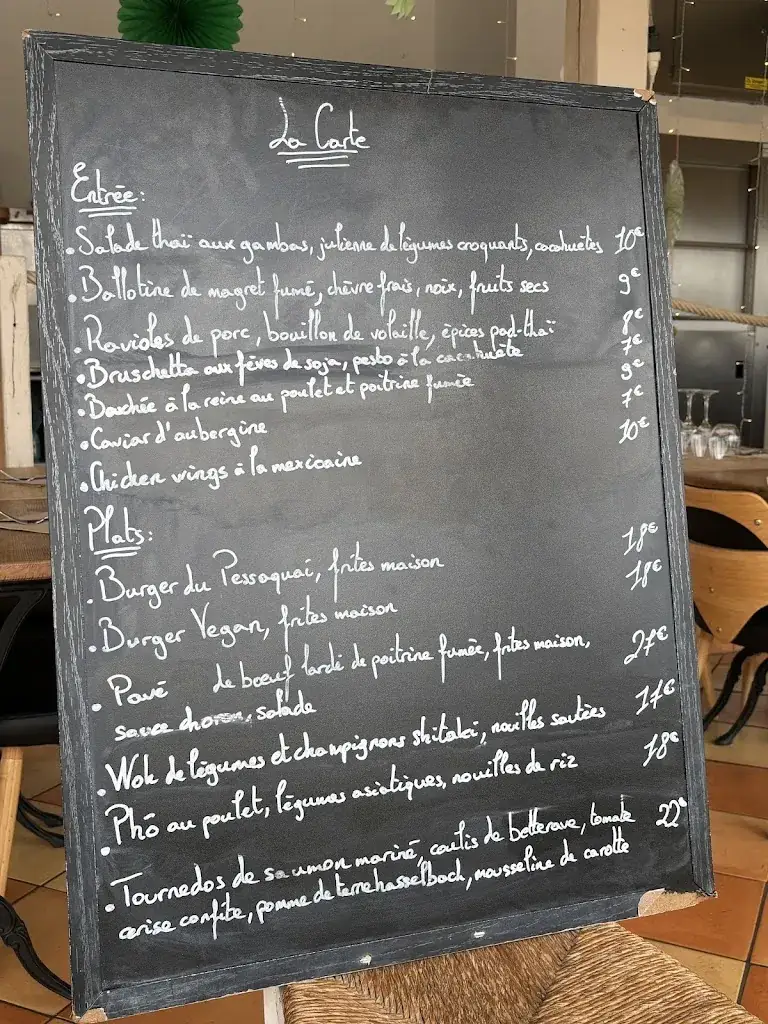 La Carte
Entrée:
• Salade thaï aux gambas, julienne de légumes croquants, cacahuètes 10€
• Ballotine de magret fumé, chèvre frais, noix, fruits secs 9€
• Ravioles de porc, bouillon de volaille, épices pad-thaï 8€
• Bruschetta aux fèves de soja, pesto à la cacahuète 7€
• Bouchée à la reine au poulet et poitrine fumée 9€
• Caviar d'aubergine 7€
• Chicken wings à la mexicaine 10€
Plats:
• Burger du Pessaquai, frites maison 18€
• Burger Vegan, frites maison 18€
• Pavé de boeuf lardé de poitrine fumée, frites maison, 27€
sauce choron, salade
• Wok de légumes et champignons shitakei, nouilles sautées 17€
• Phô au poulet, légumes asiatiques, nouilles de riz 18€
• Tournedos de saumon mariné, coulis de betterave, tomate 22€
cerise confite, pomme de terre hasselback, mousseline de carotte